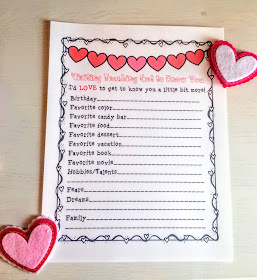 Visiting Teaching Get to Know You
I'd LOVE to get to know you a little bit more!
Birthday
Favorite color
Favorite candy bar
Favorite food
Favorite dessert
Favorite vacation
Favorite book
Favorite movie
Hobbies/Talents
Fears
Dreams
Family